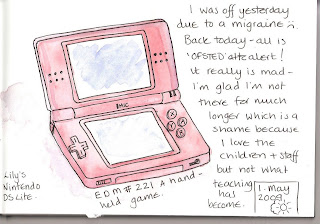 I was off yesterday
due to a migraine
Back today - all is
'OFSTED' alte alert!
It really is mad -
I'm glad I'm not
there for much
longer which is a
shame because
I love the
children + staff
but not what
teaching
has
become.
1. May
2009.
MIC
Lily's
Nintendo
DS Lite.
EDM # 221 A hand-
held game.